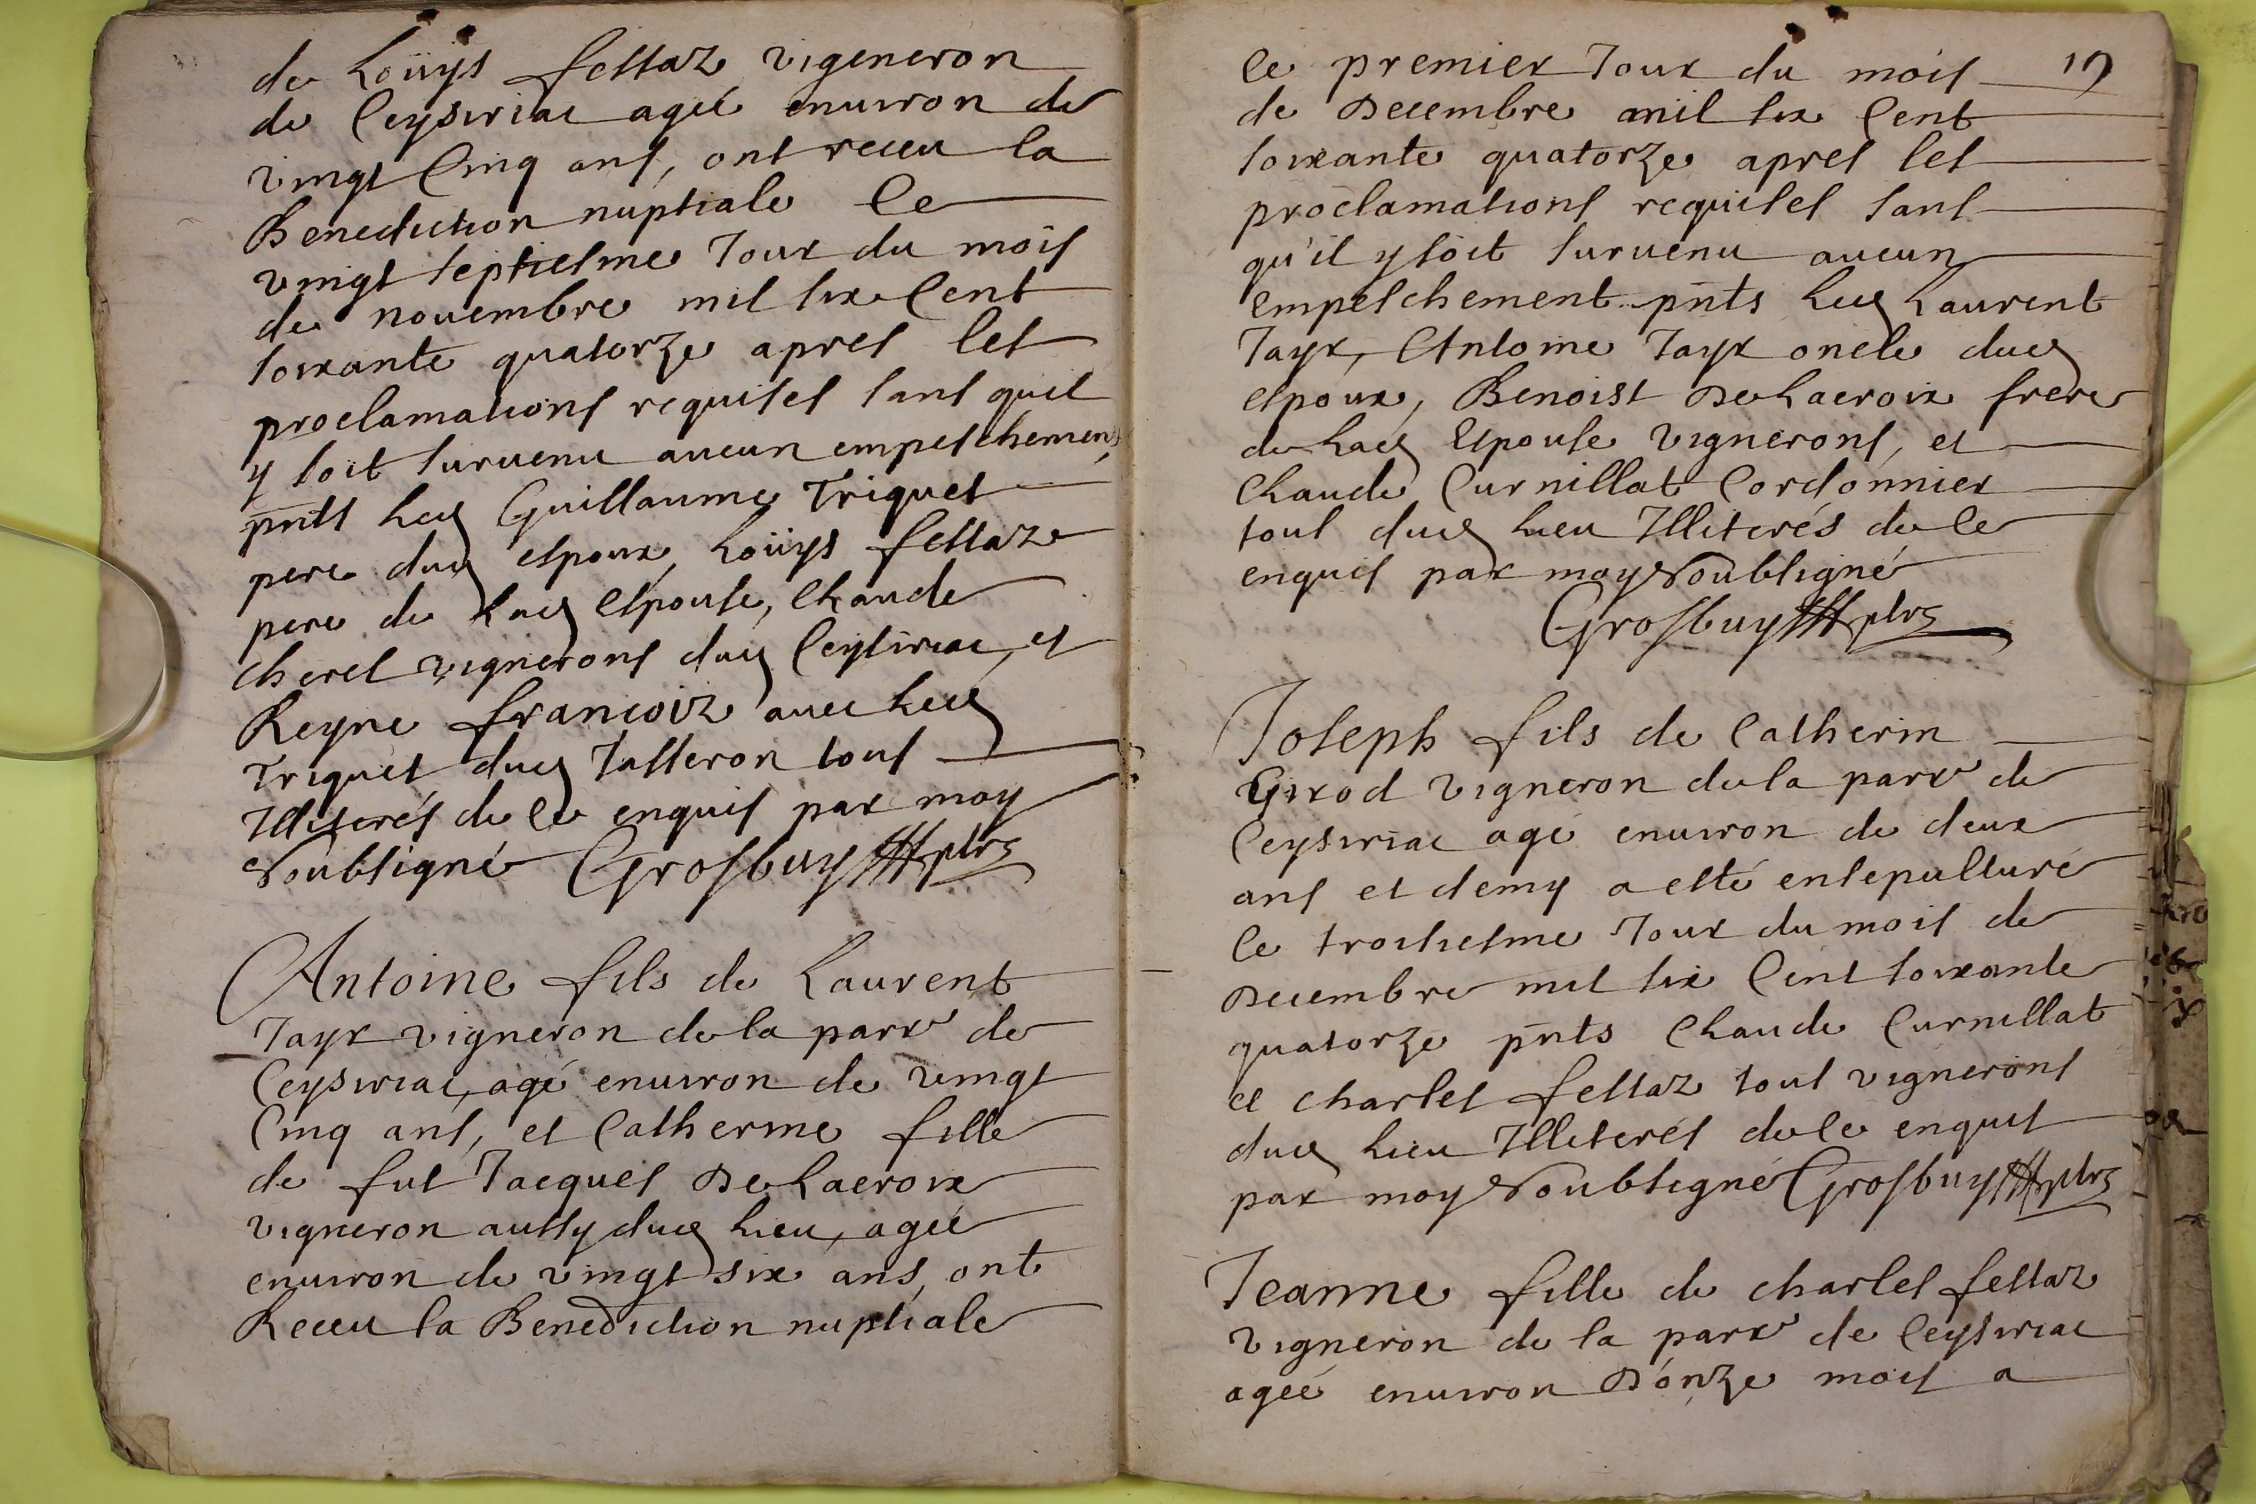 de Loüys festaz vigeneron
de Ceysiriac ageé enuiron de
vingt Cinq ans, ont receu la
Benediction nuptiale le
vingt septiesme Jour du mois
de nouembre mil six Cent
soixante quatorze apres les
proclamations requises sans quil
y soit suruenu aucun empeschement,
pnts Led Guillaume Triquet
pere dud espoux, Loüys festaz
pere de Lad Espouse, Claude
cherel vignerons dud Ceysiriac, et
Reyne francoiz auec Led
Triquet dud Jasseron tous
Illiterés de ce enquis par moy
Soubsigné Grosbuys ptre
Antoine fils de Laurent
Jayr vigneron de la parr de
Ceysiriac, agé enuiron de vingt
Cinq ans, et Catherine fille
de fut Jacques DeLacroix
vigneron aussy dud Lieu, ageé
enuiron de vingt six ans, ont
Receu la Benediction nuptiale
le premier Jour du mois
de Decembre mil six Cent
soixante quatorze apres les
proclamations requises sans
qu'il y soit suruenu aucun
empeschement pnts Led Laurent
Jayr, Antoine Jayr oncle dud
espoux, Benoist DeLacroix frere
de Lad Espouse vignerons, et
Claude Curnillat Cordonnier
tous dud Lieu Illiterés de ce
enquis par moy Soubsigné
Grosbuys ptre
Joseph fils de Catherin
Girod vigneron de la parr de
Ceysiriac agé enuiron de deux
ans et demy a esté ensepulturé
le troisiesme Jour du mois de
Decembre mil six Cent soixante
quatorze pnts Claude Curnillat
et charles festaz tous vignerons
dud Lieu Illiterés de ce enquis
par moy Soubsigné Grosbuys ptre
Jeanne fille de charles festaz
vigneron de la parr de Ceysiriac
ageé enuiron D'onze mois a